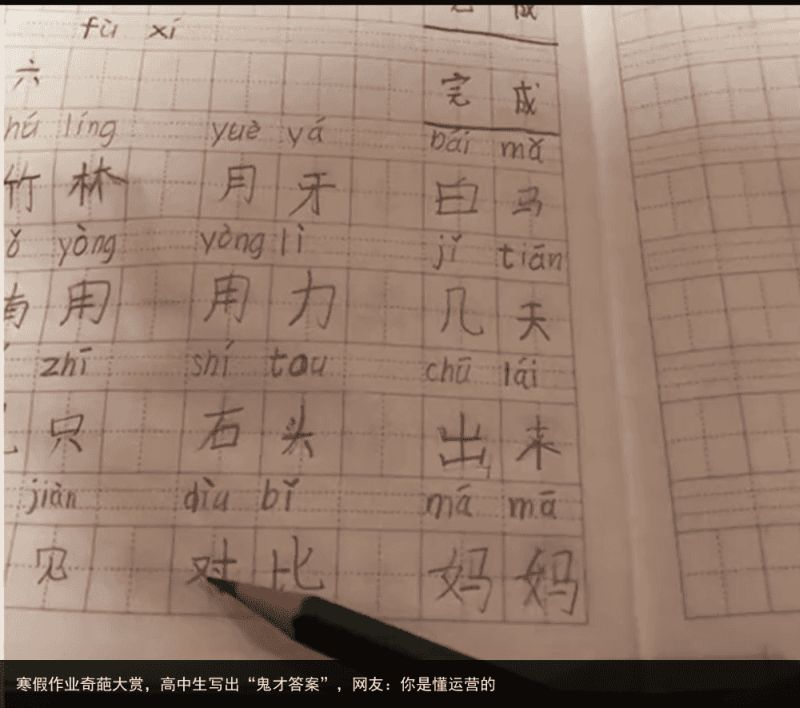 完 成
fù xí
六 完 成
hú líng yuè yá bái mǎ
竹 林 月 牙 白 马
ǒ yòng yòng lì jǐ tiān
用 用 力 几 天
zhī shí tou chū lái
只 石 头 出 来
jiàn dìu bǐ má mā
见 对 比 妈 妈
寒假作业奇葩大赏，高中生写出“鬼才答案”，网友：你是懂运营的